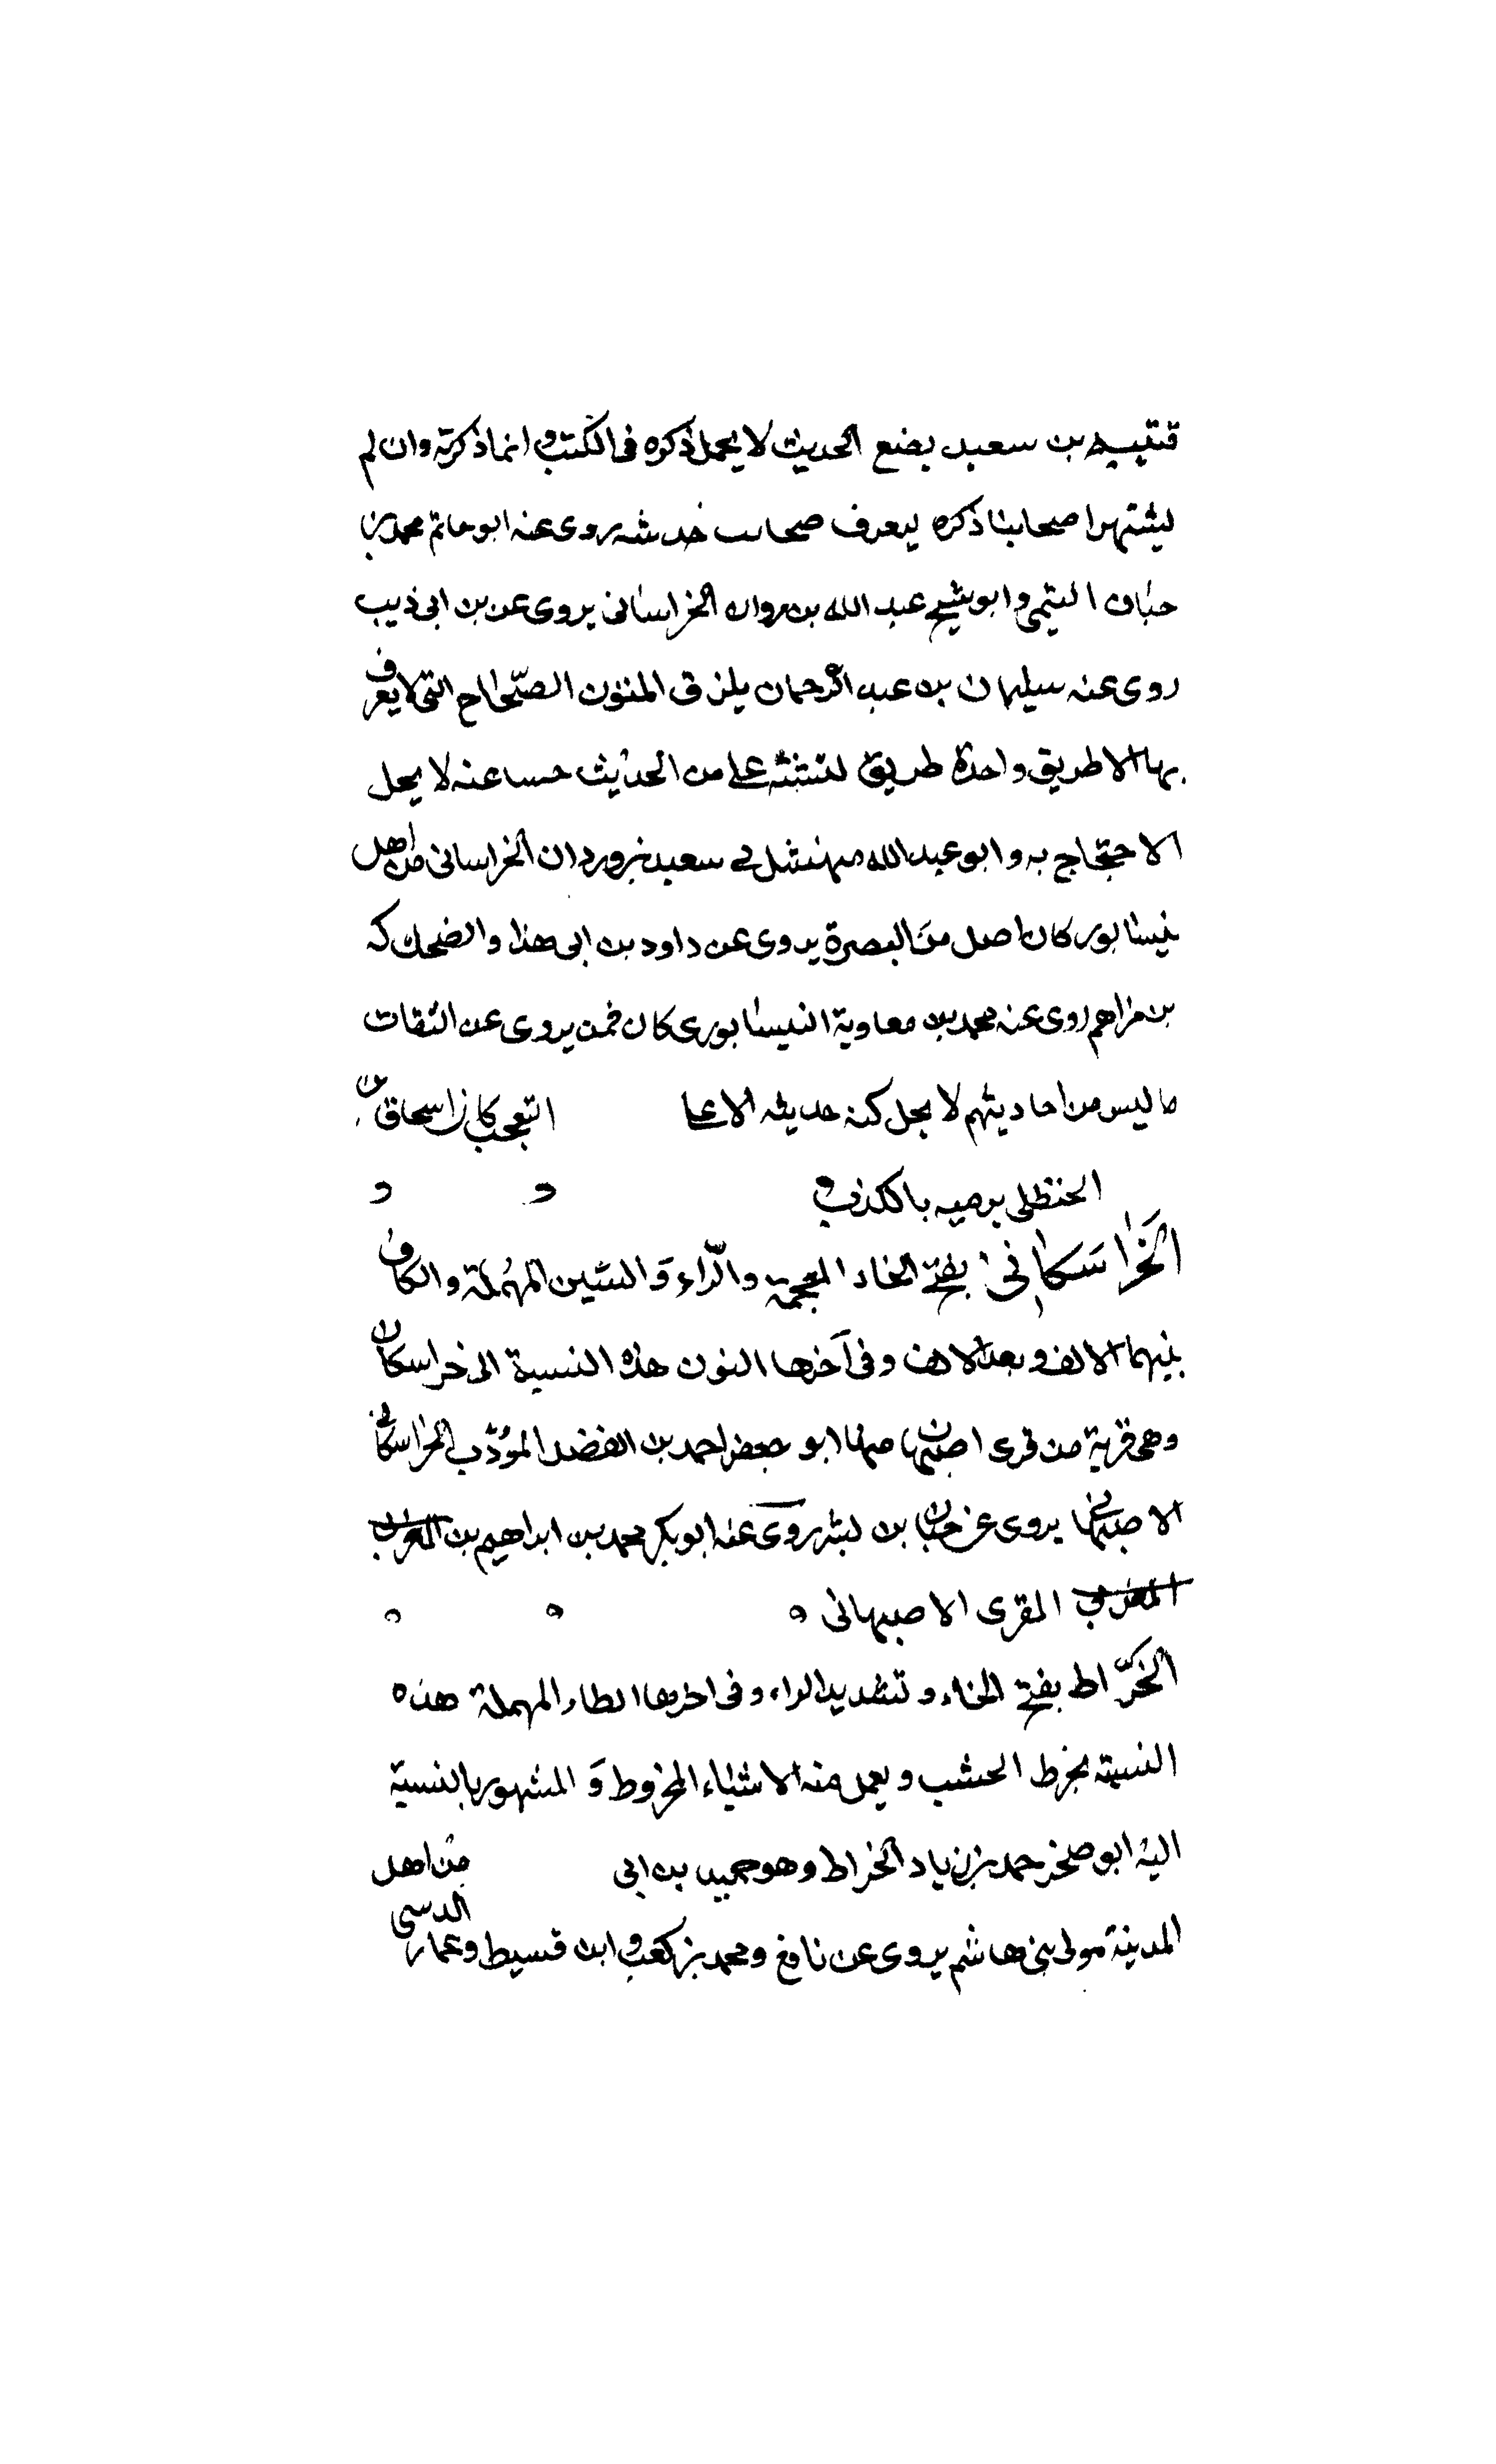 قتيبه بن سعيد يضع الحديث لا يحمل ذكره فى الكتب و انما ذكرته وان لم
يشتهر اصحابنا ذكره ليعرف صحاب حدىثه روى عنه ابو حاتم محمد بن
حبان التيمى و ابو شيخ عبد الله بن مروان الخراسانى يروى عن بن ابى ذيب
روى عنه سليمان بن عبد الرحمان يلزق المتون الصّحاح التى لا يعرف
بها الا طريق واحدة طريق لتشتة على من الحديث حسا عنه لا يحل
الاحتجاج به و ابو عبد الله نهشل بن سعيد بن وردان الخراسانى من اهل
نيسابور كان اصل من البصرة يروى عن داود بن ابى هند والضحاك
بن مزاهم روى عنه محمد بن معاوية النيسابورى كان فمن يروى عن الثقات
ما ليس من احاديثهم لا يحل كتبه حديثه الا على التعجب كان اسحاق بن
الحنظلى يرميه بالكذب
الخَراسَكانى بفتح الخاء المعجمة والرّاء وَ السّين المهُملة والكاف
بينهما الالف و بعد الالف وفى آخرها النون هذه النسبة الى خراسكان
وهى قرية من قرى اصبهان منها ابو جعفر احمد بن الفضل المؤدّب الخراسكانى
الاصبهانى يروى عن حبان بن بشر روى عنه ابو بكر محمد بن ابراهيم بن
المقرى الاصبهانى
الخَرّاط بفتح الخاء و تشديد الراء وفى اخرها الطاء المهملة هذه
النسبة بخرط الخشب و يعمل منه الاشياء المخروط وَ المشهور بالنسبة
اليه ابو صخر حمد بن زياد الخراط وهو حميد بن ابى من اهل
المدينة مولى بنى هاشم يروى عن نافع ومحمد بن كعب و ابن قسيط وعمار الدهنى